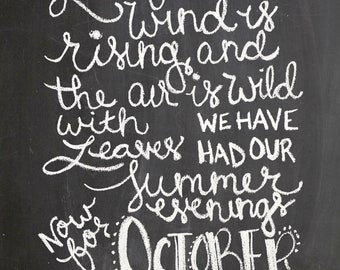 wind is
rising, and
the air is wild
with
Leaves
WE HAVE
HAD OUR
summer
evenings
Now
for
OCTOBER